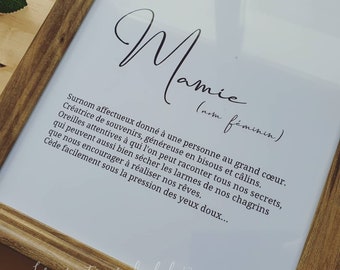 Mamie
(nom féminin)
Surnom affectueux donné à une personne au grand cœur.
Créatrice de souvenirs, généreuse en bisous et câlins.
Oreilles attentives à qui l'on peut raconter tous nos secrets,
qui peuvent aussi bien sécher les larmes de nos chagrins
que nous encourager à réaliser nos rêves.
Cède facilement sous la pression des yeux doux...